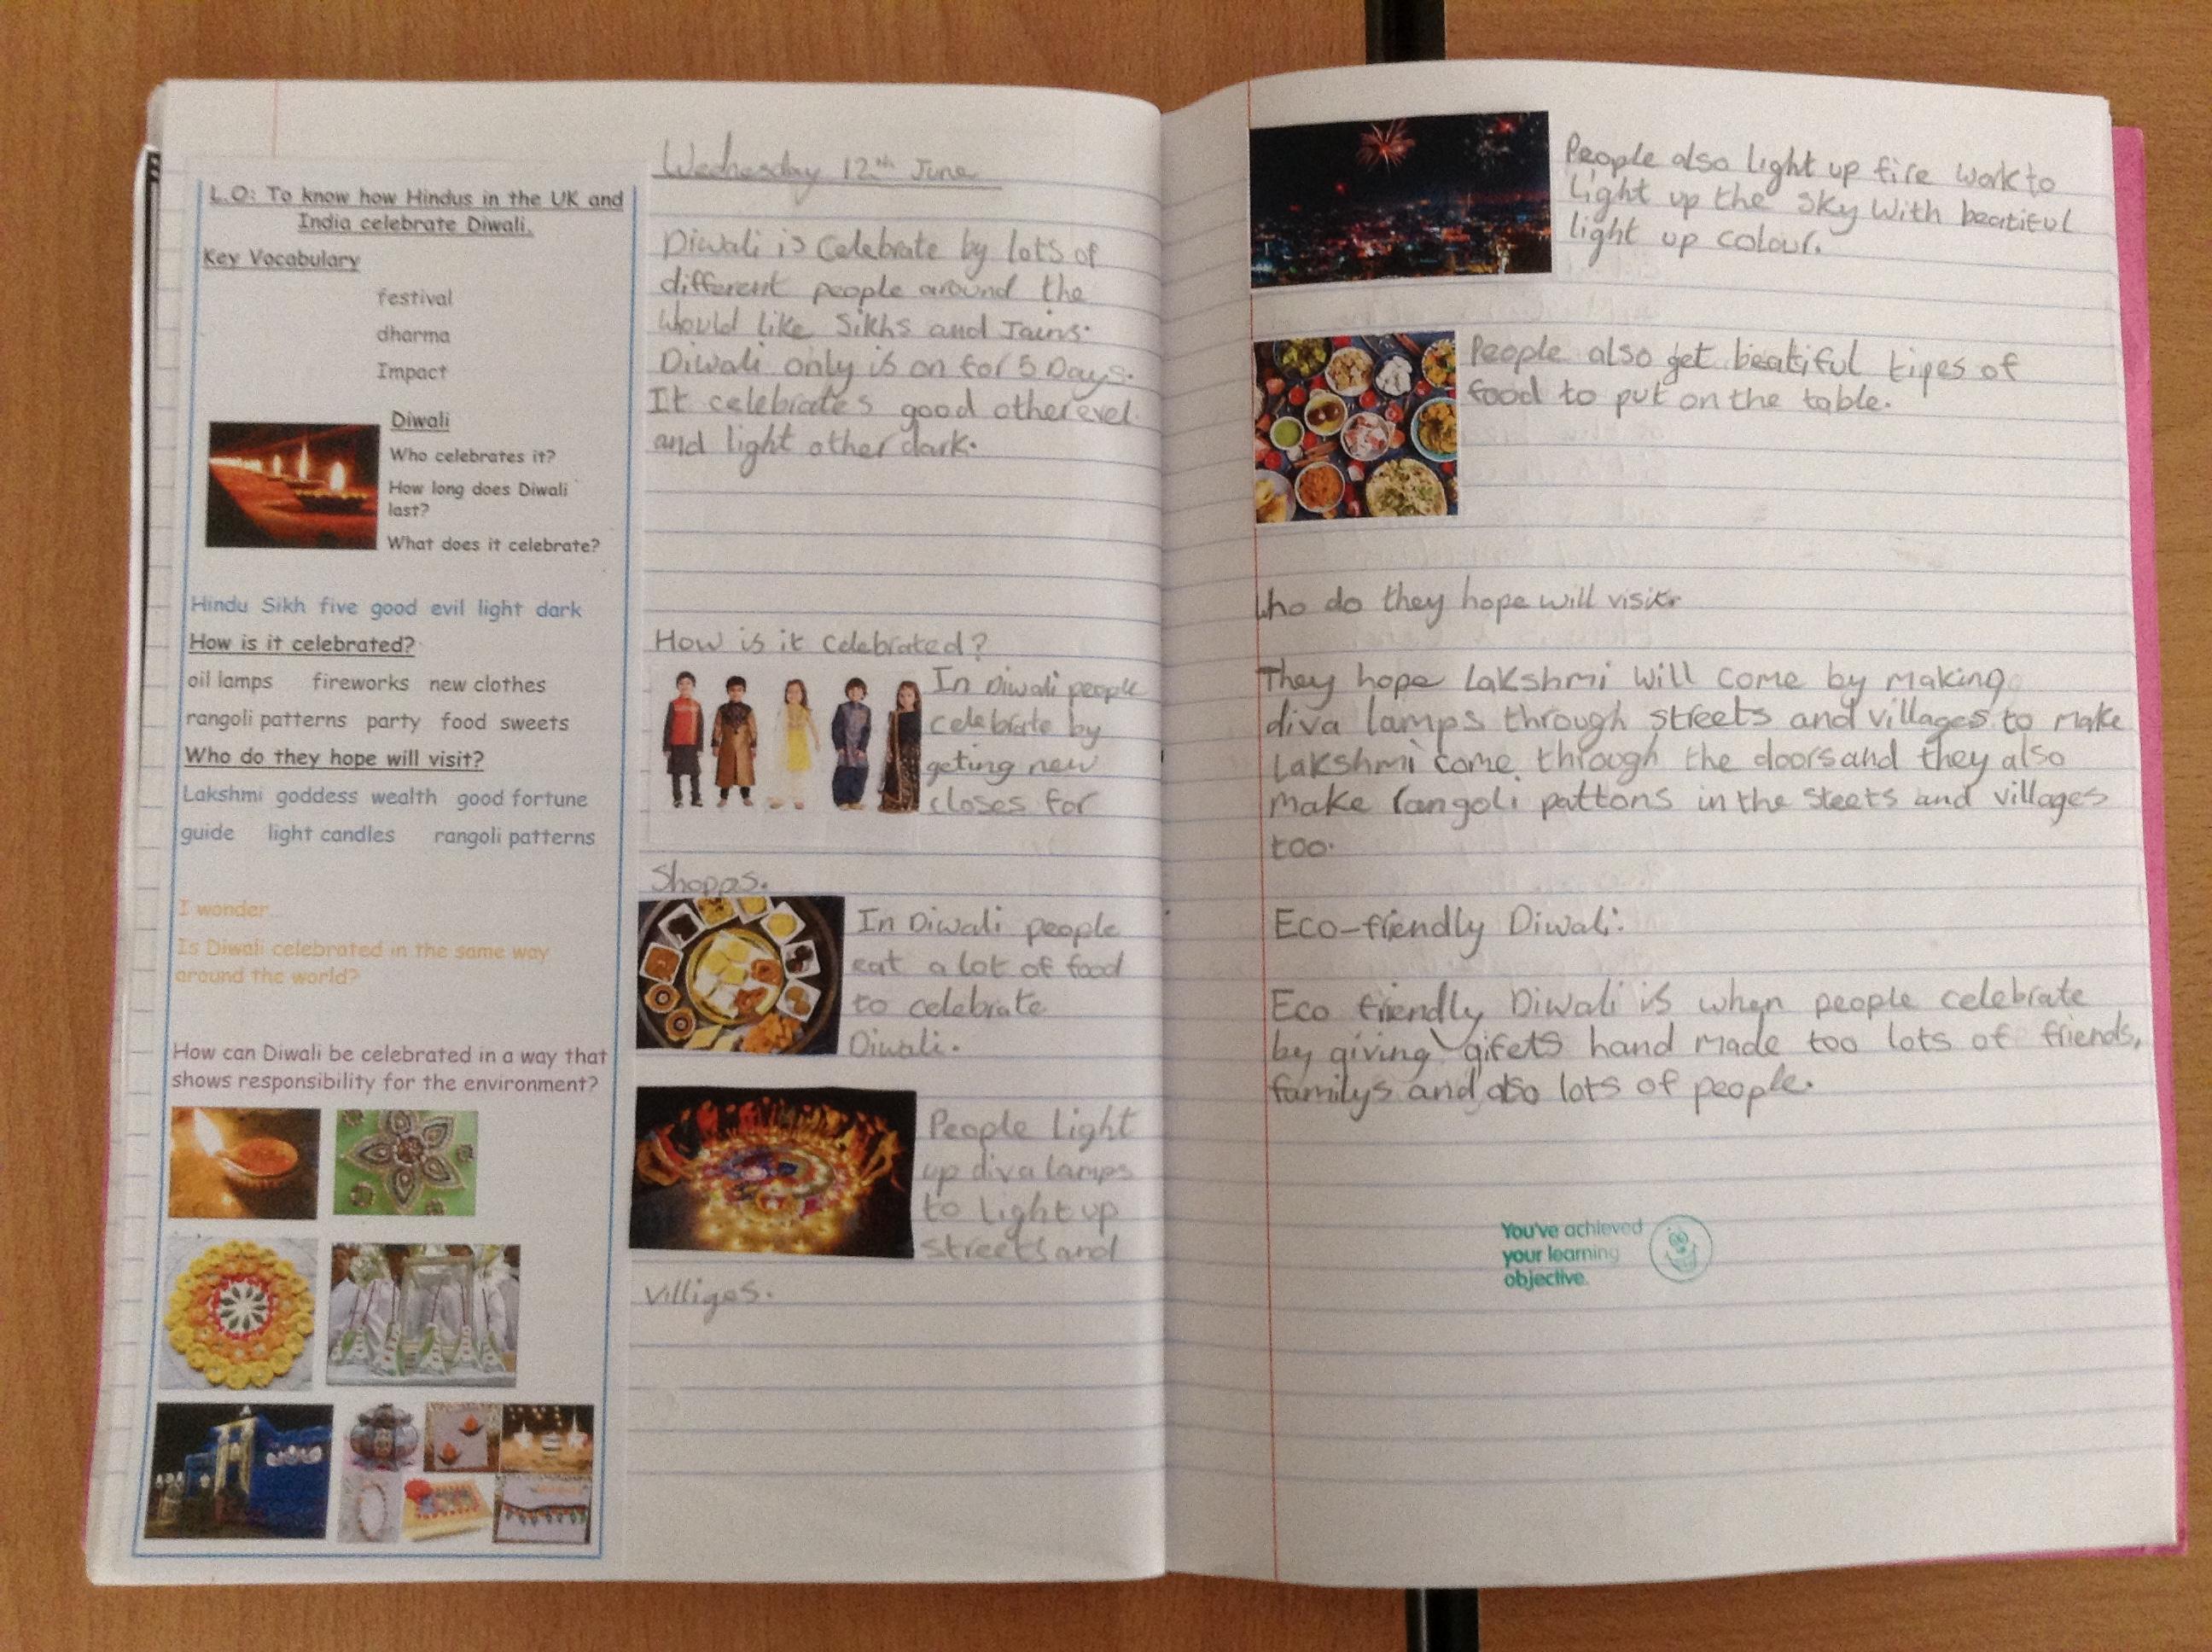 L.O: To know how Hindus in the UK and
India celebrate Diwali.
Key Vocabulary
festival
dharma
Impact
Diwali
Who celebrates it?
How long does Diwali
last?
What does it celebrate?
Hindu Sikh five good evil light dark
How is it celebrated?
oil lamps fireworks new clothes
rangoli patterns party food sweets
Who do they hope will visit?
Lakshmi goddess wealth good fortune
guide light candles rangoli patterns
I wonder...
Is Diwali celebrated in the same way
around the world?
How can Diwali be celebrated in a way that
shows responsibility for the environment?
Wednesday 12th June
Diwali is celebrate by lots of
different people around the
would like Sikhs and Jains.
Diwali only is on for 5 Days.
It celebrates good other evel
and light other dark.
How is it celebrated?
In Diwali people
celebrate by
geting new
closes for
Shopps.
In Diwali people
eat a lot of food
to celebrate
Diwali.
People Light
up diva lamps
to Light up
streets and
villiges.
People also light up fire work to
Light up the sky with beatiful
light up colour.
People also get beatiful tipes of
food to put on the table.
who do they hope will visit
They hope Lakshmi will come by making
diva lamps through streets and villages to make
Lakshmi come through the doors and they also
make rangoli pattons in the steets and villages
too.
Eco-friendly Diwali:
Eco friendly Diwali is when people celebrate
by giving gifets hand made too lots of friends,
familys and also lots of people.
You've achieved
your learning
objective.